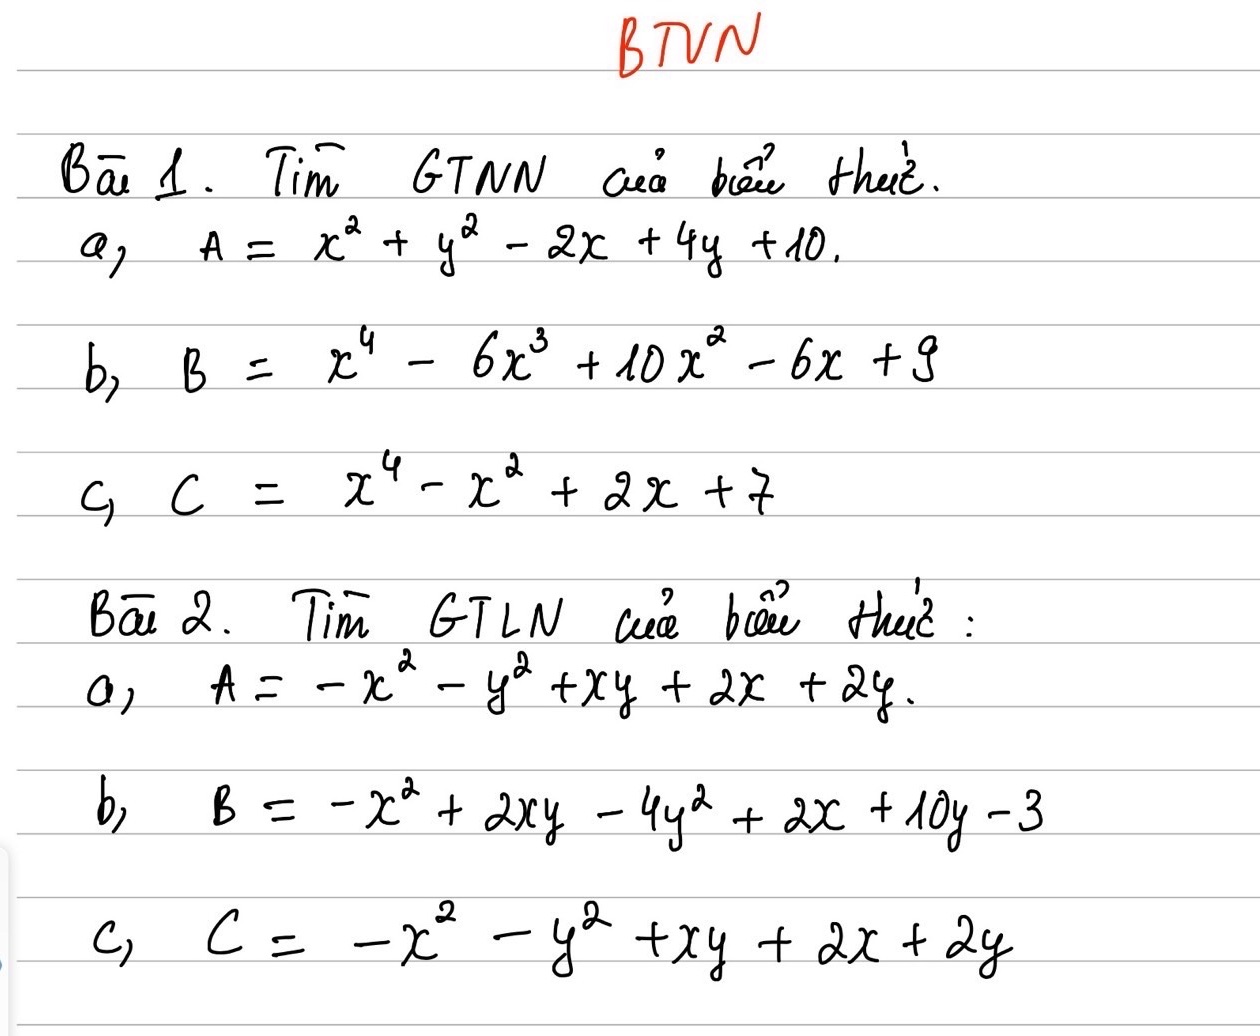 BTVN
Bài 1. Tìm GTNN của biểu thức.
a, A = x² + y² - 2x + 4y + 10.
b, B = x⁴ - 6x³ + 10x² - 6x + 9
c, C = x⁴ - x² + 2x + 7
Bài 2. Tìm GTLN của biểu thức :
a, A = -x² - y² + xy + 2x + 2y.
b, B = -x² + 2xy - 4y² + 2x + 10y - 3
c, C = -x² - y² + xy + 2x + 2y